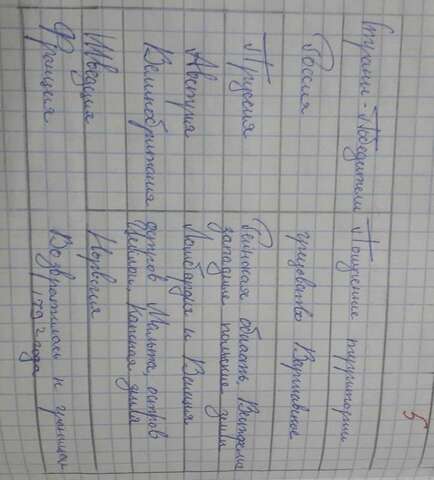 5
Страны-Победители Полученные территории
Россия герцовство Варшавское
Пруссия Рейнская область, Вестфалия
западные польские земли
Австрия Ломбардия и Венеция
Великобритания остров Мальта, остров
Цейлон Капская земля
Швеция Норвегия
Франция Возвратилась к границам
1792 года